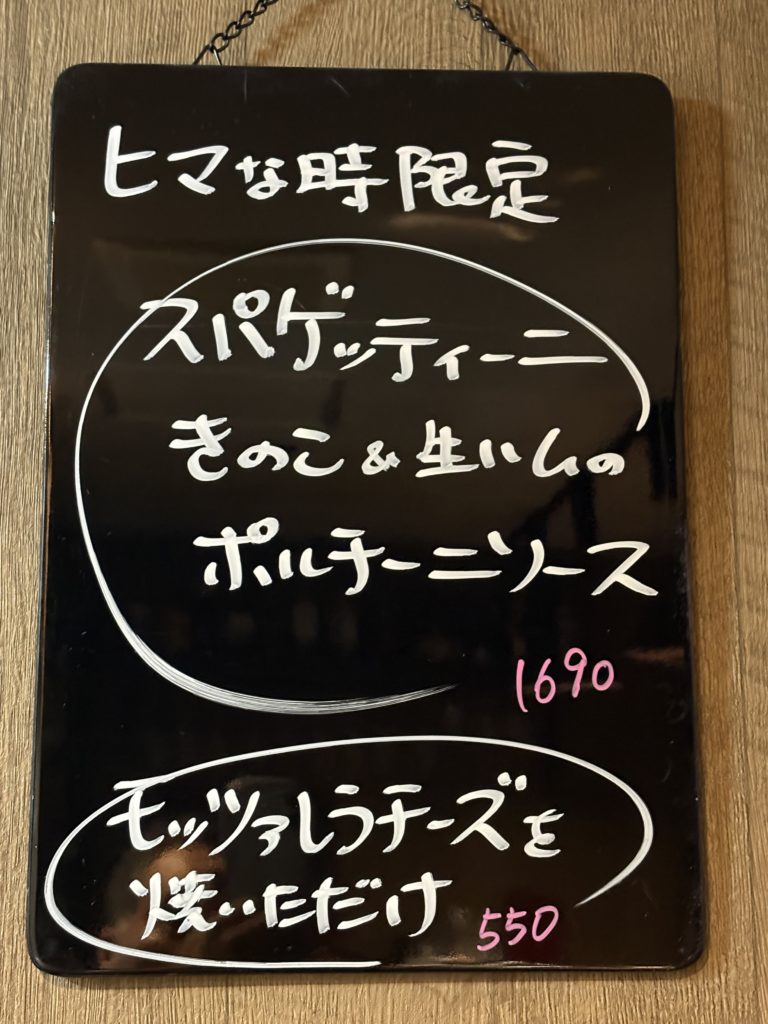 ヒマな時限定
スパゲッティーニ
きのこ&生ハムの
ポルチーニソース
1690
モッツァレラチーズを
焼いただけ
550